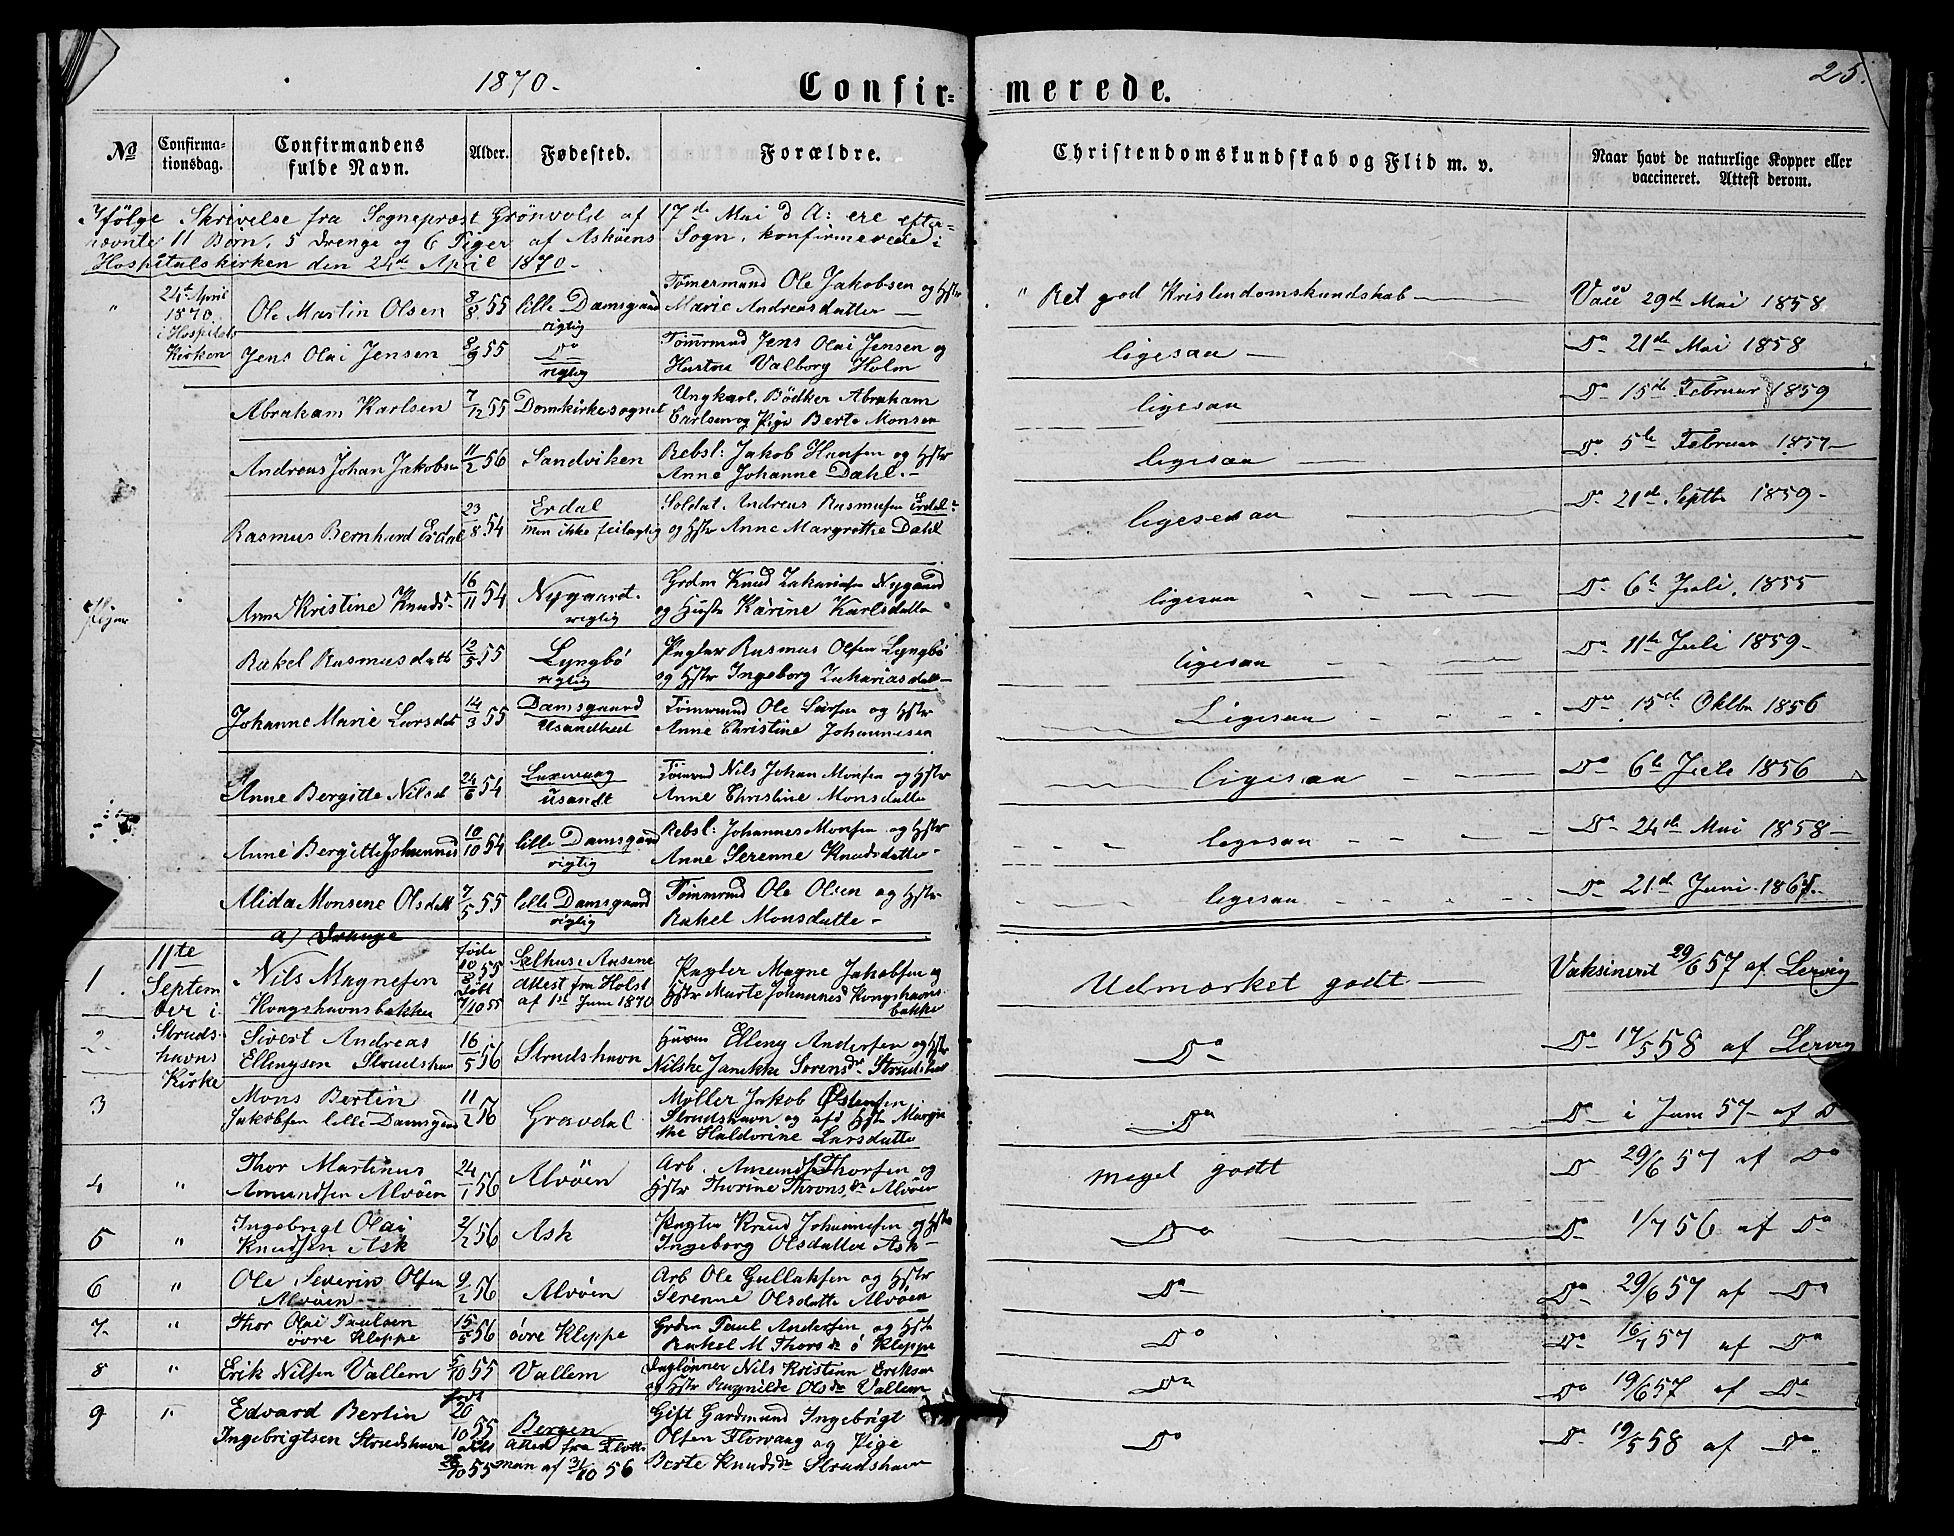 1870.
Confir=
merede.
25.
No
Confirma-
tionsdag.
Confirmandens
fulde Navn.
Alder.
Fødested.
Forældre.
Christendomskundskab og Flid m. v.
Naar havt de naturlige Kopper eller
vaccineret. Attest derom.
Ifölge Skrivelse fra Sogneprest Grönvold af 17de Mai d A: ere efter=
nævnte 11 Børn, 5 Drenge og 6 Piger af Askøens Sogn, konfirmerede i
Hospitalskirken den 24de April 1870.
24de April
1870
i Hospitals
Kirken
" Ole Martin Olsen 8/8 55 lille Damsgaard
rigtig
Tømermand Ole Jakobsen og Hstr
Marie Andreasdatter
" Ret god Kristendomskundskab
Vacc 29de Mai 1858
Jens Olai Jensen 8/9 55 Do
rigtig
Tømrmd Jens Olai Jensen og
Hustru Valborg Holm
ligesaa
Do 21de Mai 1858
Abraham Karlsen 7/12 55 Domkirkesognet
Ungkarl, Bödker Abraham
Carlsen og Pige Berte Monsen
ligesaa
Do 15de Februar 1859
Andreas Johan Jakobsen 11/2 56 Sandviken
Rebsl: Jakob Hansen og Hstr
Anne Johanne Dahl.
ligesaa
Do 5te Februar 1857
Rasmus Bernhard Erdal 23/8 54 Erdal
men ikke
Soldat. Andreas Rasmusen Erdal
og Hstr Anne Margrethe Dahl
ligesaa
Do 21de Septbr 1859
Piger
Anne Kristine Knuds. 16/11 54 Nygaard.
rigtig
Grdm Knud Zakariasen Nygaard
og Hustr Karine Karlsdatter
ligesaa
Do 6te Juli. 1855
Rakel Rasmusdatt 12/5 55 Lyngbö
rigtig
Pagter Rasmus Olsen Lyngbö
og Hstr Ingeborg Zakariasdatt
ligesaa
Do 11te Juli 1859
Johanne Marie Larsdat 14/3 55 Damsgaard
Usandhed
Tömrmd Ole Larsen og Hstr
Anne Christine Johannesen
Ligesaa
Do 15de Oktbr 1856
Anne Bergitte Nilsd 24/6 54 Laxevaag
usandt
Tömrmd Nils Johan Monsen og Hstr
Anne Christine Monsdatter
ligesaa
Do 6te Juli 1856
Anne Bergitte Johannesd 10/10 54 lille Damsgaard
rigtig
Rebsl: Johannes Monsen og Hstr
Anne Serenne Knudsdatter
ligesaa
Do 24de Mai 1858
Alida Monsene Olsdatt 7/5 55 lille Damsgaard
rigtig
Tömmrmd Ole Olsen og Hstr
Rakel Monsdatter
ligesaa
Do 21de Juni
a) Drenge
1. 11te
Septem
ber i
Struds-
havns
Kirke
Nils Magnesen
Kongshavnsbakken
föde
10/2 55
döbt
7/10 55
Salhus i Aasene
Attest fra Holst
af 1ste Juni 1870
Pagter Magne Jakobsen og
Hstr Marte Johannesd Kongshavns-
bakke
Udmærket godt
Vaksineret 29/6 57 af Lervig
2. Sivert Andreas
Ellingsen Strudshavn
16/5 56 Strudshavn
Elling Andersen og Hstr
Nilske Janikke Sorensdr Strudshavn
Do
Do 17/5 58 af Lervig
3 Mons Bertin
Jakobsen lille Damsgaard
11/2 56 Gravdal
Møller Jakob Østensen
Strudshavn og afd Hstr Margre
the Haldorine Larsdatter
Do
Do i Juni 57 af Do
4 " Thor Martinus
Amundsen Alvöen
24/1 56 Alvöen
Arb. Amund Thorsen og
Hstr Thorine Thronsdr Alvöen
meget godt
Do 29/6 57 af Do
5 " Ingebrigt Olai
Knudsen Ask
2/2 56 Ask
Pagter Knud Johannesen og Hstr
Ingeborg Olsdatter Ask
Do
Do 1/7 56 af Do
6 " Ole Severin Olsen
Alvöen
9/2 56 Alvöen
Arb Ole Gullaksen og Hstr
Serenne Olsdatter Alvöen
Do
Do 29/6 57 af Do
7 " Thor Olai Paulsen
övre Kleppe
15/5 56 övre Kleppe
Grdm Paul Andersen og Hstr
Rakel M Thorsdr ö Kleppe
Do
Do 16/7 57 af Do
8 " Erik Nilsen Vallem 5/10 55 Vallem
Daglönner Nils Kristian Eriksen
og Hstr Ragnilde Olsdr Vallem
Do
Do 19/6 57 af Do
9 " Edvard Bertin
Ingebrigtsen Strudshavn
födt
20/10 55
döbt
28/10 55
Bergen
attest fra Flott
man af 31/10 56
Gift Gardmand Ingebrigt
Olsen Florvaag og Pige
Berte Knudsdr Strudshavn
Do
Do 19/5 58 af Do